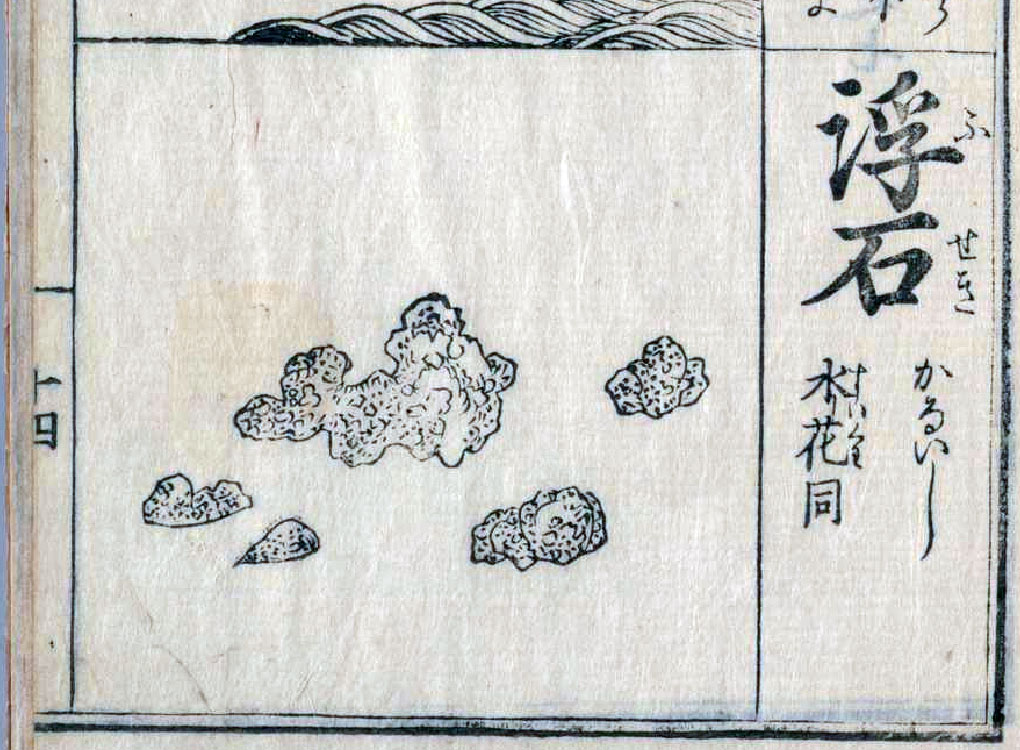 浮石
ふせき
かるいし
水花同
すいくは
十四